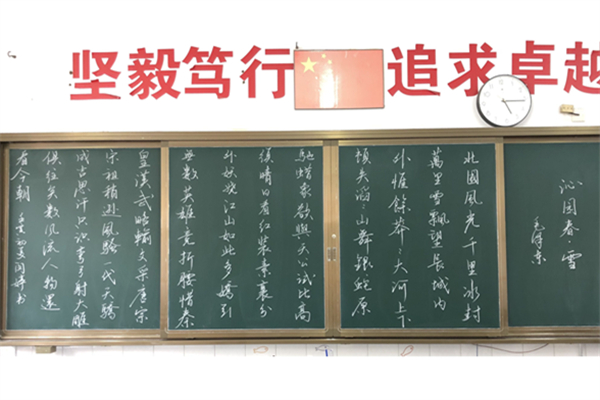 坚毅笃行 追求卓越
沁园春·雪
毛泽东
北國風光千里冰封
萬里雪飄望長城内
外惟餘莽々大河上下
頓失滔々山舞銀蛇原
馳蠟象欲與天公試比高
須晴日看红装素裹分
外妖娆江山如此多嬌引
無數英雄竞折腰惜秦
皇漢武略輸文采唐宗
宋祖稍遜風騷一代天驕
成吉思汗只识弯弓射大雕
俱往矣數风流人物還
看今朝 初夏 书